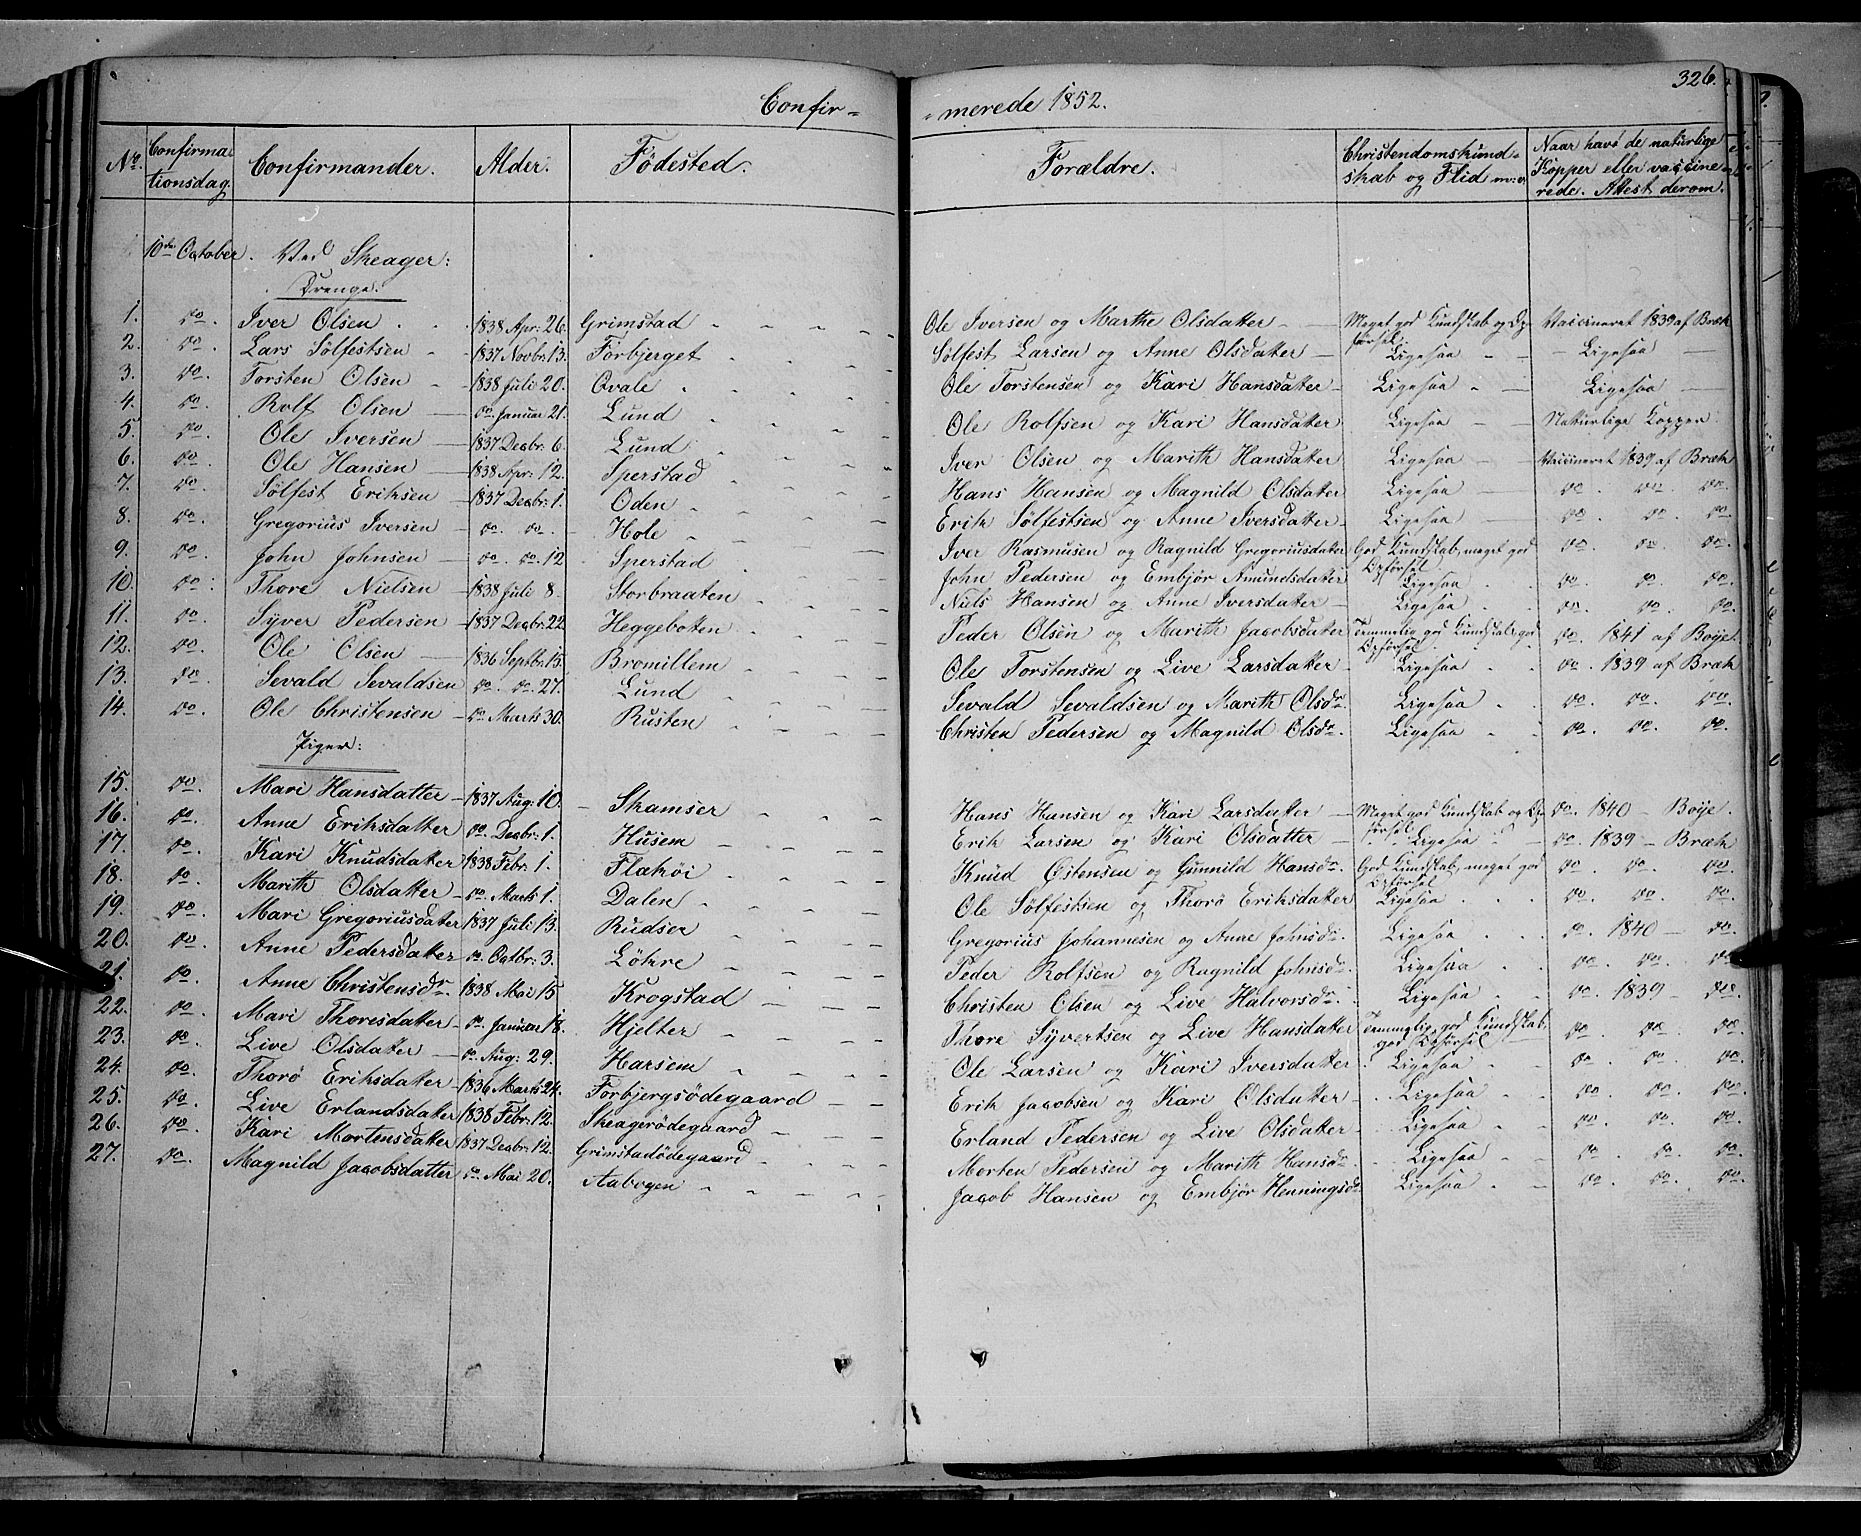 326.
Confir- -merede 1852.
No. Confirmationsdag. Confirmander. Alder. Fødested. Forældre. Christendomskundskab og Flid m: v. Naar havt de naturlige Kopper eller vaccinerede. Attest derom.
10de October. Ved Skeager:
Drenge.
1. do. Iver Olsen 1838 Apr: 26. Grimstad Ole Iversen og Marthe Olsdatter Meget god Kundskab og Opførsel. Vaccineret 1839 af Bræk
2. do. Lars Sølfestsen 1837 Novbr: 13. Forbjerget Sølfest Larsen og Anne Olsdatter Ligesaa Ligesaa
3. do. Torsten Olsen 1838 Juli 20. Qvale Ole Torstensen og Kari Hansdatter Ligesaa Ligesaa
4. do. Rolf Olsen do. Januar 21. Lund Ole Rolfsen og Kari Hansdatter Ligesaa Naturlige Kopper.
5. do. Ole Iversen 1837 Decbr: 6. Lund Iver Olsen og Marith Hansdatter Ligesaa Vaccineret 1839 af Bræk
6. do. Ole Hansen 1838 Apr: 12. Sperstad Hans Hansen og Magnild Olsdatter Ligesaa do. do. do.
7. do. Sølfest Eriksen 1837 Decbr: 1. Oden Erik Sølfestsen og Anne Iversdatter Ligesaa do. do. do.
8. do. Gregorius Iversen do. do. Hole Iver Rasmusen og Ragnild Gregoriusdatter God Kundskab, meget god Opførsel. do. do. do.
9. do. John Johnsen do. do. 12 Sperstad John Pedersen og Embjør Amundsdatter Ligesaa do. do. do.
10. do. Thore Nielsen 1838 Juli 8. Storbraaten Niels Hansen og Anne Iversdatter Ligesaa do. do. do.
11. do. Syver Pedersen 1837 Decbr: 22 Heggebotten Peder Olsen og Marith Jacobsdatter Temmelig god Kundskab, god Opførsel do. 1841 af Boye.
12. do. Ole Olsen 1836 Septbr: 15. Bromillem Ole Torstensen og Live Larsdatter Ligesaa do. 1839 af Bræk
13. do. Sevald Sevaldsen do. do. 27. Lund Sevald Sevaldsen og Marith Olsdr. Ligesaa do. do. do.
14. do. Ole Christensen do. Marts 30. Rusten Christen Pedersen og Magnild Olsdr. Ligesaa do. do. do.
Piger:
15. do. Mari Hansdatter 1837 Aug: 10. Skamser Hans Hansen og Kari Larsdatter Meget god Kundskab og Opførsel do. 1840 - Boye.
16. do. Anne Eriksdatter do. Decbr: 1. Husem Erik Larsen og Kari Olsdatter Ligesaa do. 1839 - Bræk
17. do. Kari Knudsdatter 1838 Febr: 1. Flakøi Knud Østensen og Gunnild Hansdr. God Kundskab, meget god Opførsel do. do. do.
18. do. Marith Olsdatter do. Marts 1. Dalen Ole Sølfestsen og Thorø Eriksdatter Ligesaa do. do. do.
19. do. Mari Gregoriusdatter 1837 Juli 13. Rudser Gregorius Johannesen og Anne Johnsdr. Ligesaa do. 1840 - do.
20. do. Anne Pedersdatter do. Octbr: 3. Løkre Peder Rolfsen og Ragnild Johnsdr. Ligesaa do. do. do.
21. do. Anne Christensdr. 1838 Mai 15 Krogstad Christen Olsen og Live Halvorsdr. Ligesaa do. 1839 - do.
22. do. Mari Thoresdatter do. Januar 18. Hjelter Thore Syvertsen og Live Hansdatter Temmelig god Kundskab, god Opførsel do. do. do.
23. do. Live Olsdatter do. Aug: 29. Harsem Ole Larsen og Kari Iversdatter Ligesaa do. do. do.
24. do. Thorø Eriksdatter 1836 Marts 24. Forbjergsødegaard Erik Jacobsen og Kari Olsdatter Ligesaa do. do. do.
25. do. Live Erlandsdatter 1838 Febr: 12. Skeagerødegaard Erland Pedersen og Live Olsdatter Ligesaa do. do. do.
26. do. Kari Mortensdatter 1837 Decbr: 12. Grimstadødegaard Morten Pedersen og Marith Hansdr. Ligesaa do. do. do.
27. do. Magnild Jacobsdatter do. Mai 20. Aabogen Jacob Hansen og Embjør Henningsdr Ligesaa do. do. do.